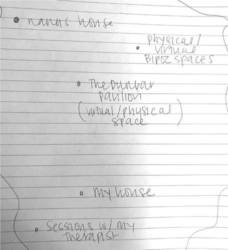 nana's house
physical/
virtual
BIPOC spaces
The Dunbar
Pavilion
(virtual/physical
space)
my house
Sessions w/ my
therapist